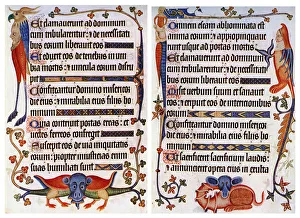 Et clamaverunt ad dominum
cum tribularentur: et de necessitati
bus eorum liberavit eos
Et eduxit eos de tenebris et um
bra mortis: et vincula eorum disru
pit
Confiteantur domino misericor
die eius: et mirabilia eius filijs ho
minum
Quia contrivit portas ereas: et
vectes ferreos confregit
Suscepit eos de via iniquitatis
eorum: propter iniusticias enim
suas humiliati sunt
Omnem escam abhominata est
anima eorum: et appropinquave
runt usque ad portas mortis
Et clamaverunt ad dominum
cum tribularentur: et de necessita
tibus eorum liberavit eos
Misit verbum suum et sanavit
eos: et eripuit eos de interitionibus
eorum
Confiteantur domino misericor
die eius: et mirabilia eius filijs
hominum
Et sacrificent sacrificium laudis:
et annuncient opera eius in exulta